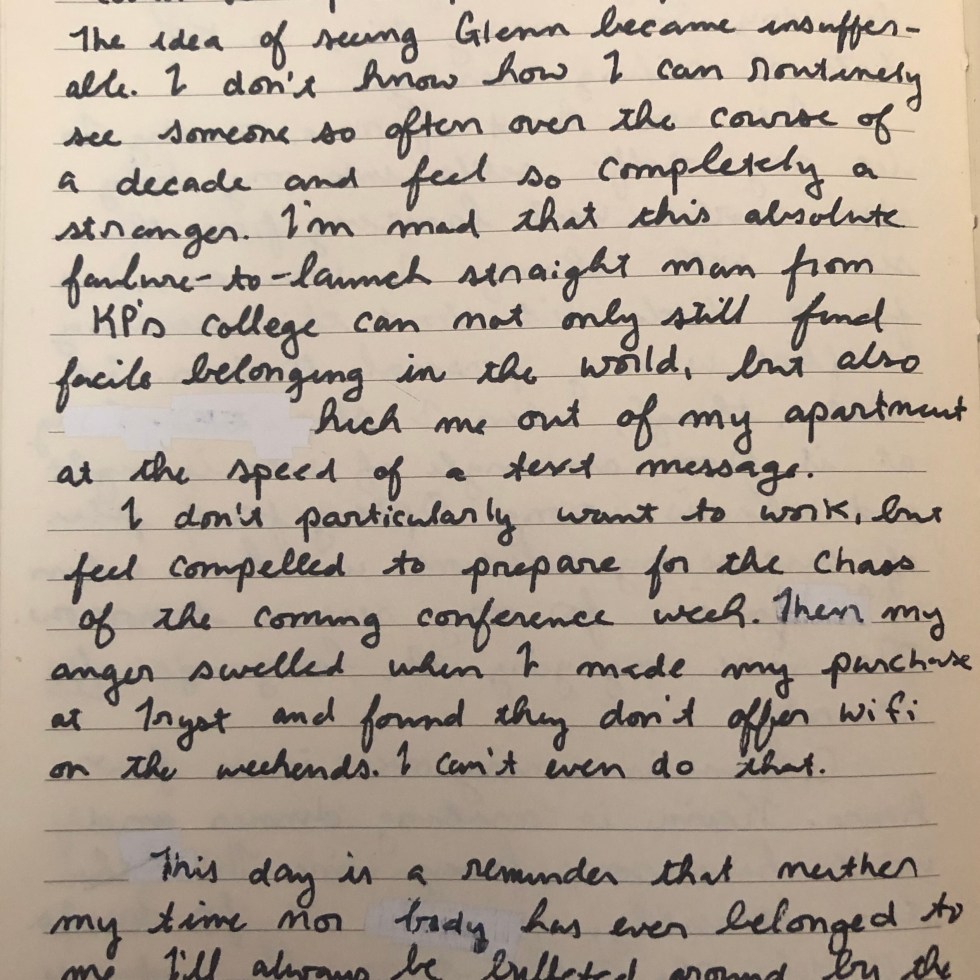 The idea of seeing Glenn became insuffer-
able. I don't know how I can routinely
see someone so often over the course of
a decade and feel so completely a
stranger. I'm mad that this absolute
failure-to-launch straight man from
KP's college can not only still find
facile belonging in the world, but also
kick me out of my apartment
at the speed of a text message.
I don't particularly want to work, but
feel compelled to prepare for the chaos
of the coming conference week. Then my
anger swelled when I made my purchase
at Tryst and found they don't offer wifi
on the weekends. I can't even do that.
This day is a reminder that neither
my time nor body has ever belonged to
me. I'll always be around by the